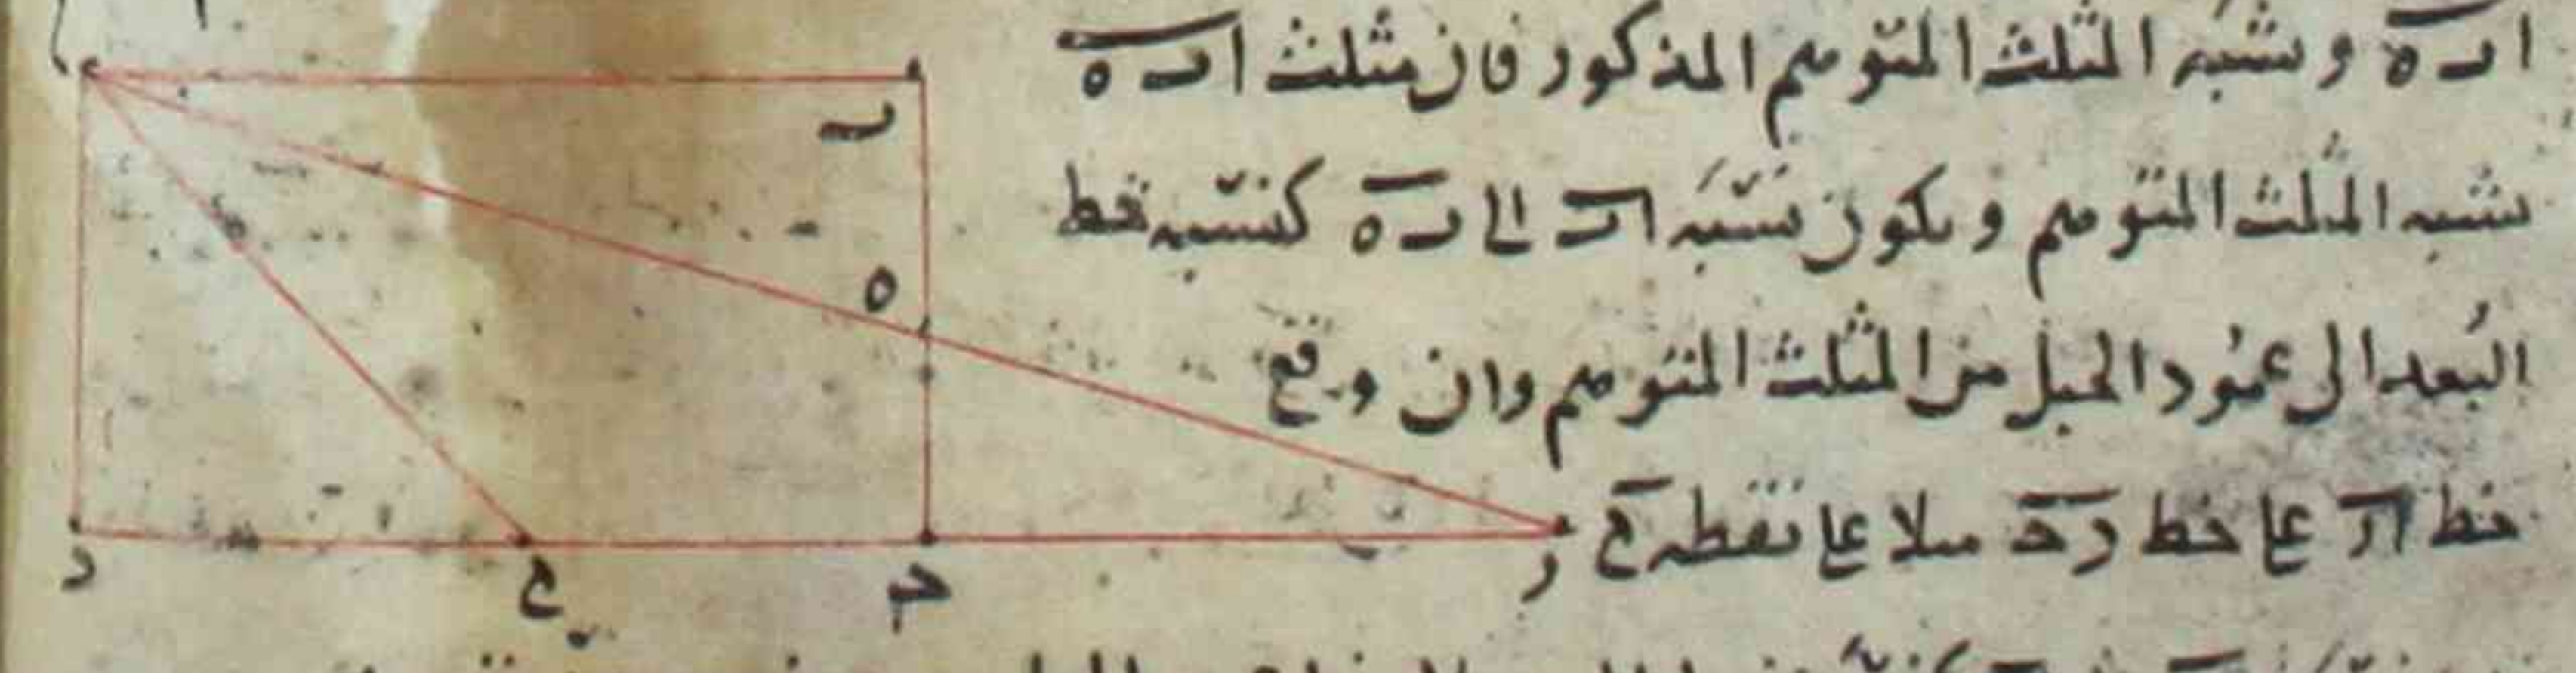 اٮه وشبه المثلث المتوهم المذكور فان مثلث اٮه
شبه المثلث المتوهم ويكون نسبة اٮ الى ٮه كنسبة خط
البُعد الى عمُود الجبل من المثلث المتوهم وان وقع
خط ار على خط دحـ مثلا على نقطه ح
ا
ٮ
ه
د
ح
حـ
ر